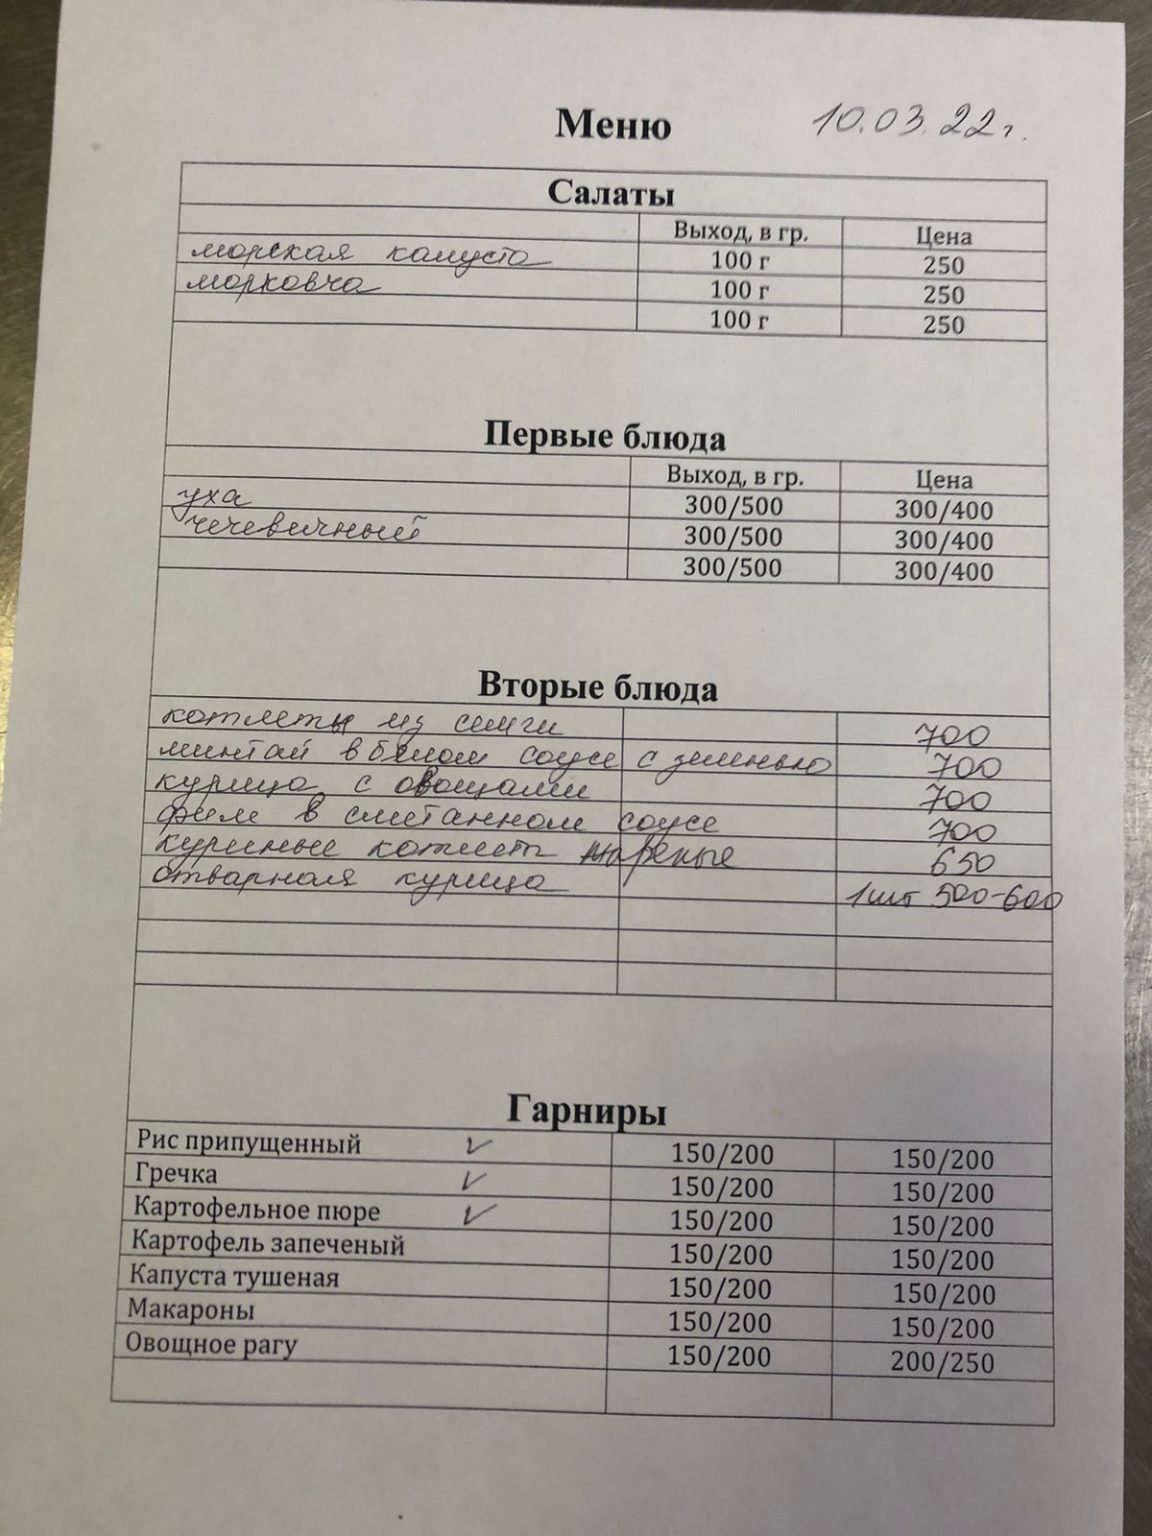 Меню 10.03.22г.
Салаты
Выход, в гр. Цена
морская капуста 100 г 250
морковча 100 г 250
100 г 250
Первые блюда
Выход, в гр. Цена
уха 300/500 300/400
чечевичный 300/500 300/400
300/500 300/400
Вторые блюда
котлеты из семги 700
минтай в белом соусе с зеленью 700
курица с овощами 700
филе в сметанном соусе 700
куриные котлеты жареные 650
отварная курица 1 шт 500-600
Гарниры
Рис припущенный ✓ 150/200 150/200
Гречка ✓ 150/200 150/200
Картофельное пюре ✓ 150/200 150/200
Картофель запеченый 150/200 150/200
Капуста тушеная 150/200 150/200
Макароны 150/200 150/200
Овощное рагу 150/200 200/250